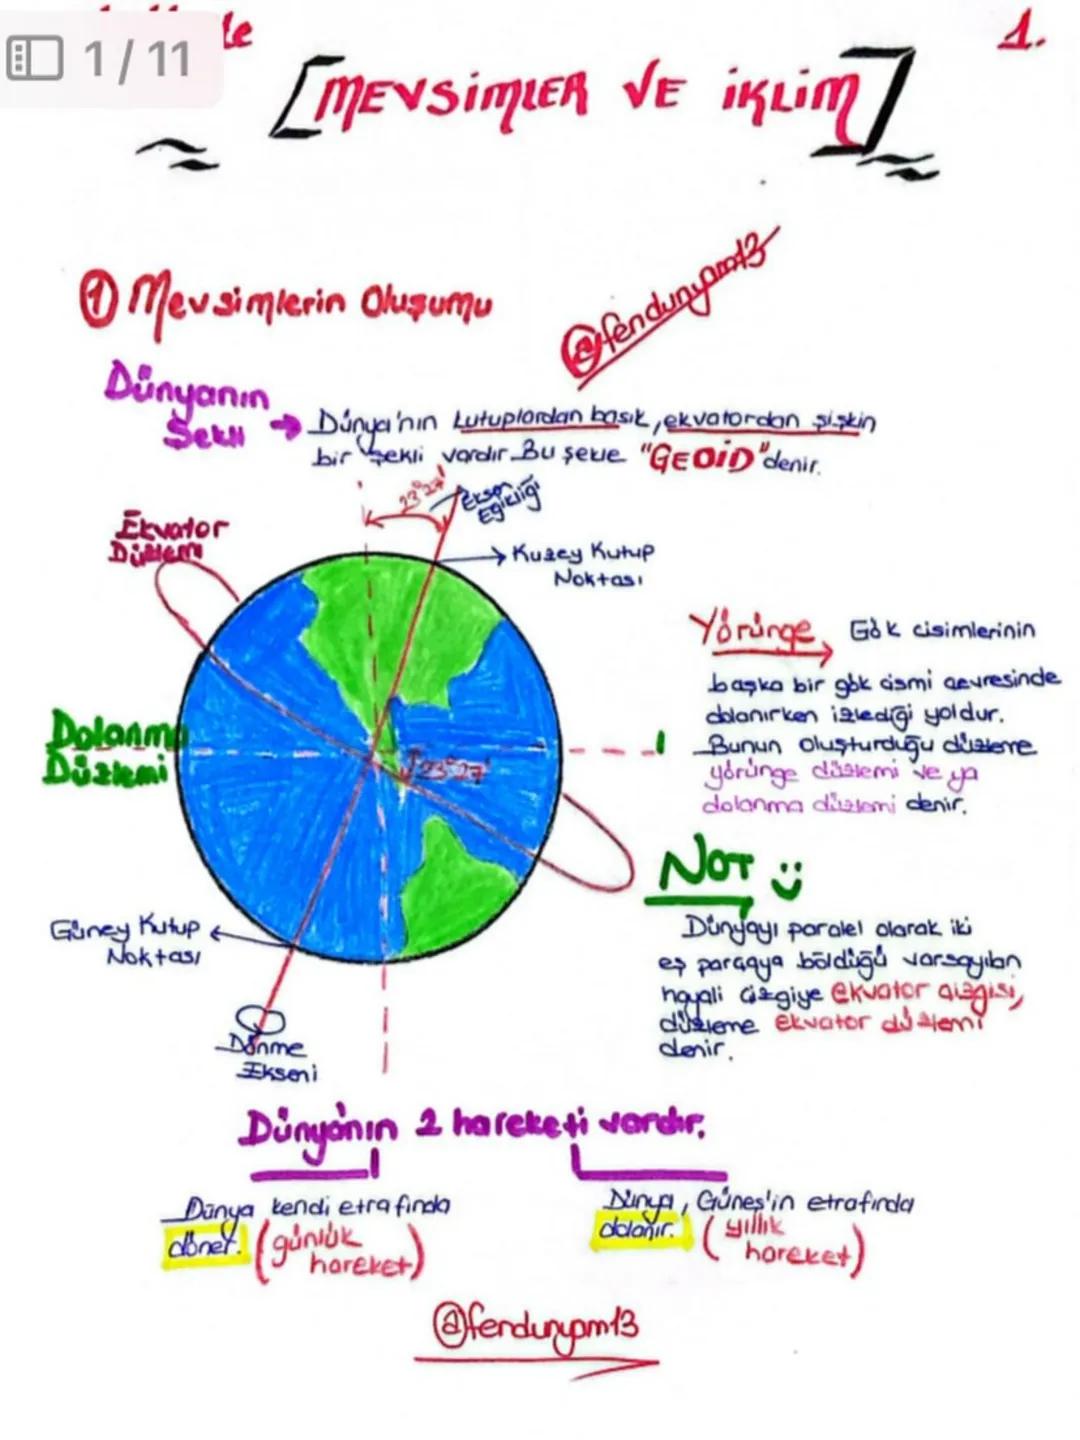 1/11
1.
[MEVSİMLER VE İKLİM]
① Mevsimlerin Oluşumu
@fendunyam13
Dünyanın
Şekli → Dünya'nın kutuplardan basık, ekvatordan şişkin
bir şekli vardır. Bu şekle "GEOİD" denir.
23°27'
Eksen
Eğikliği
Ekvator
Düzlemi
Kuzey Kutup
Noktası
Yörünge → Gök cisimlerinin
başka bir gök cismi çevresinde
dolanırken izlediği yoldur.
Bunun oluşturduğu düzleme
yörünge düzlemi ve ya
dolanma düzlemi denir.
Dolanma
Düzlemi
23°27'
NOT
Dünyayı paralel olarak iki
eş parçaya böldüğü varsayılan
hayali çizgiye ekvator çizgisi,
düzleme ekvator düzlemi
denir.
Güney Kutup
Noktası
Dönme
Ekseni
Dünyanın 2 hareketi vardır.
Dünya kendi etrafında
döner. (günlük
hareket)
Dünya, Güneş'in etrafında
dolanır. (yıllık
hareket)
@fendunyam13